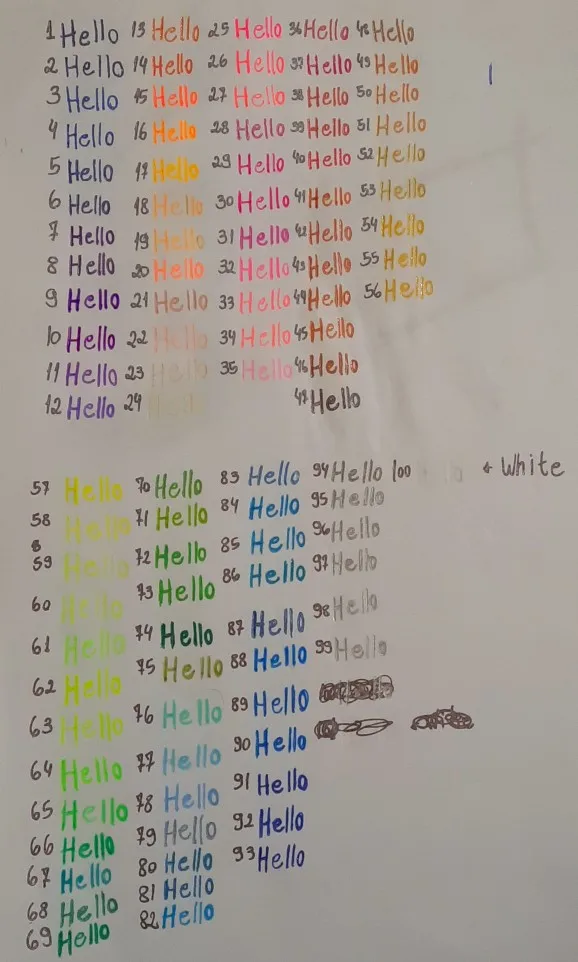 1 Hello 13 Hello 25 Hello 36 Hello 48 Hello
2 Hello 14 Hello 26 Hello 37 Hello 49 Hello
3 Hello 15 Hello 27 Hello 38 Hello 50 Hello
4 Hello 16 Hello 28 Hello 39 Hello 51 Hello
5 Hello 17 Hello 29 Hello 40 Hello 52 Hello
6 Hello 18 Hello 30 Hello 41 Hello 53 Hello
7 Hello 19 Hello 31 Hello 42 Hello 54 Hello
8 Hello 20 Hello 32 Hello 43 Hello 55 Hello
9 Hello 21 Hello 33 Hello 44 Hello 56 Hello
10 Hello 22 Hello 34 Hello 45 Hello
11 Hello 23 Hello 35 Hello 46 Hello
12 Hello 24 Hello 47 Hello
57 Hello 70 Hello 83 Hello 94 Hello 100 White
58 Hello 71 Hello 84 Hello 95 Hello
8
59 Hello 72 Hello 85 Hello 96 Hello
60 Hello 73 Hello 86 Hello 97 Hello
61 Hello 74 Hello 87 Hello 98 Hello
62 Hello 75 Hello 88 Hello 99 Hello
63 Hello 76 Hello 89 Hello
64 Hello 77 Hello 90 Hello
65 Hello 78 Hello 91 Hello
66 Hello 79 Hello 92 Hello
67 Hello 80 Hello 93 Hello
68 Hello 81 Hello
69 Hello 82 Hello